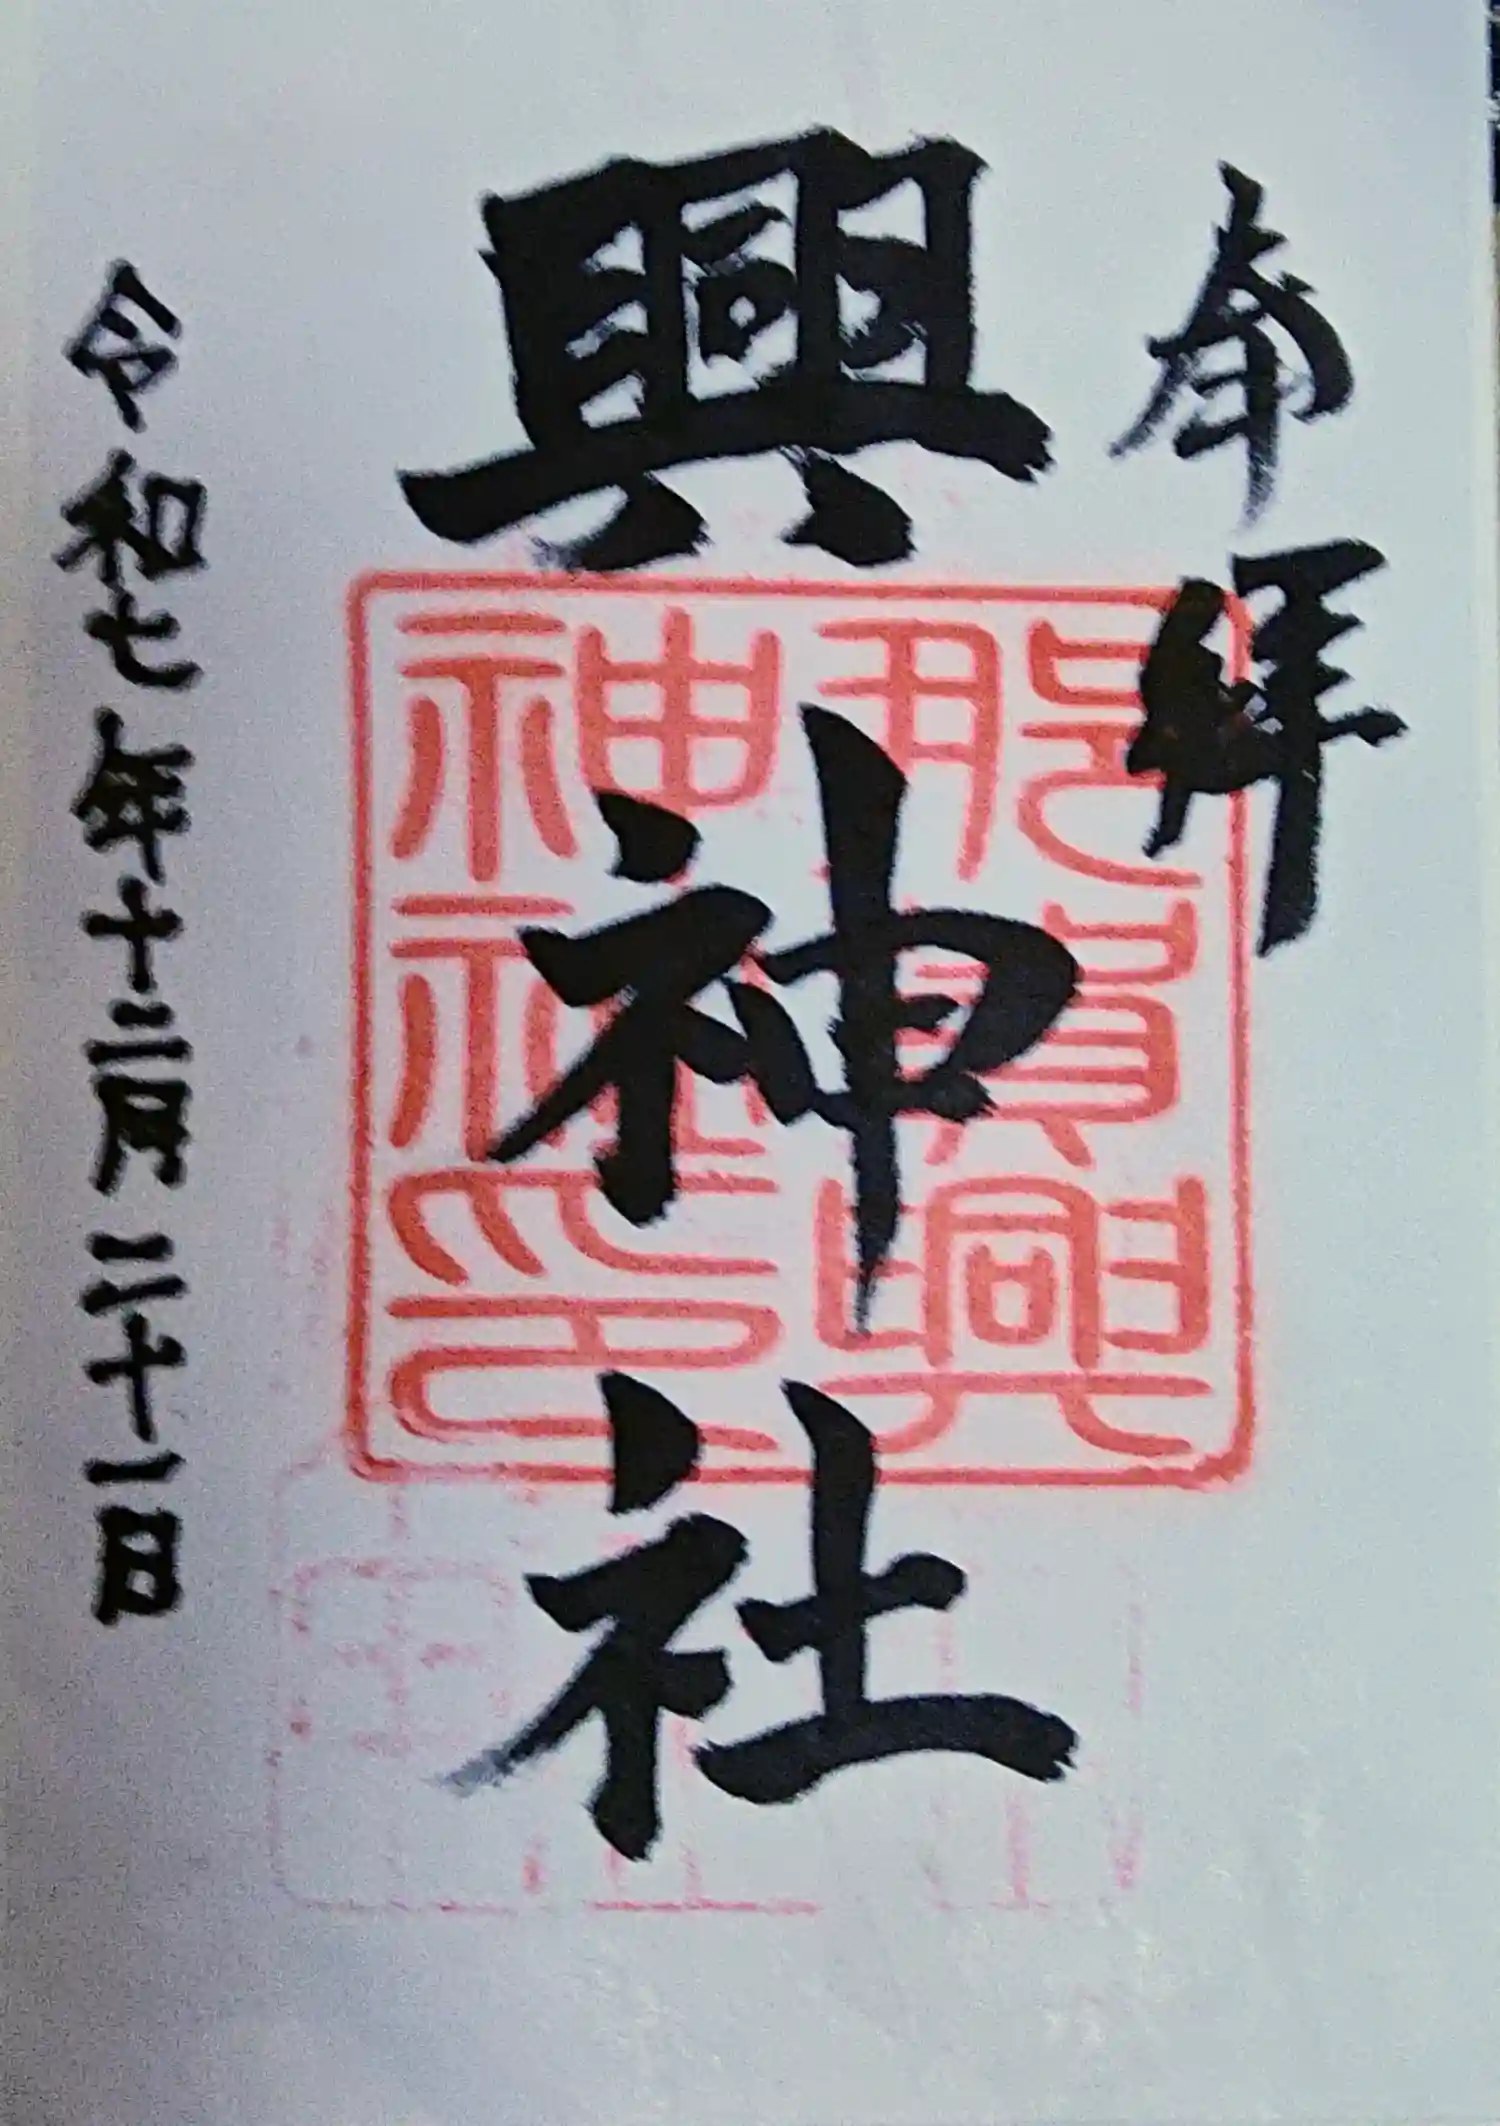 奉拝
興神社
那賀興
神社印
令和七年十二月二十一日